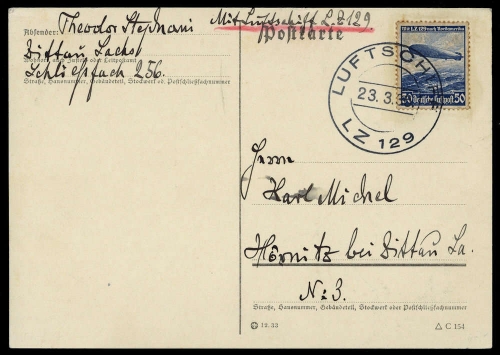 Absender: Theodor Stephani
Zittau Sachs.
Wohnort, auch Zustell- oder Leitpostamt
Schließfach 256.
Straße, Hausnummer, Gebäudeteil, Stockwerk od. Postschließfachnummer
Mit Luftschiff L.Z. 129
Postkarte
Mit LZ 129 nach Nordamerika
50 Deutsche Luftpost 50
LUFTSCHIFF
23.3.
LZ 129
Herrn
Karl Michel
Hörnitz bei Zittau Sa.
No: 3.
Straße, Hausnummer, Gebäudeteil, Stockwerk oder Postschließfachnummer
12.33
C 154